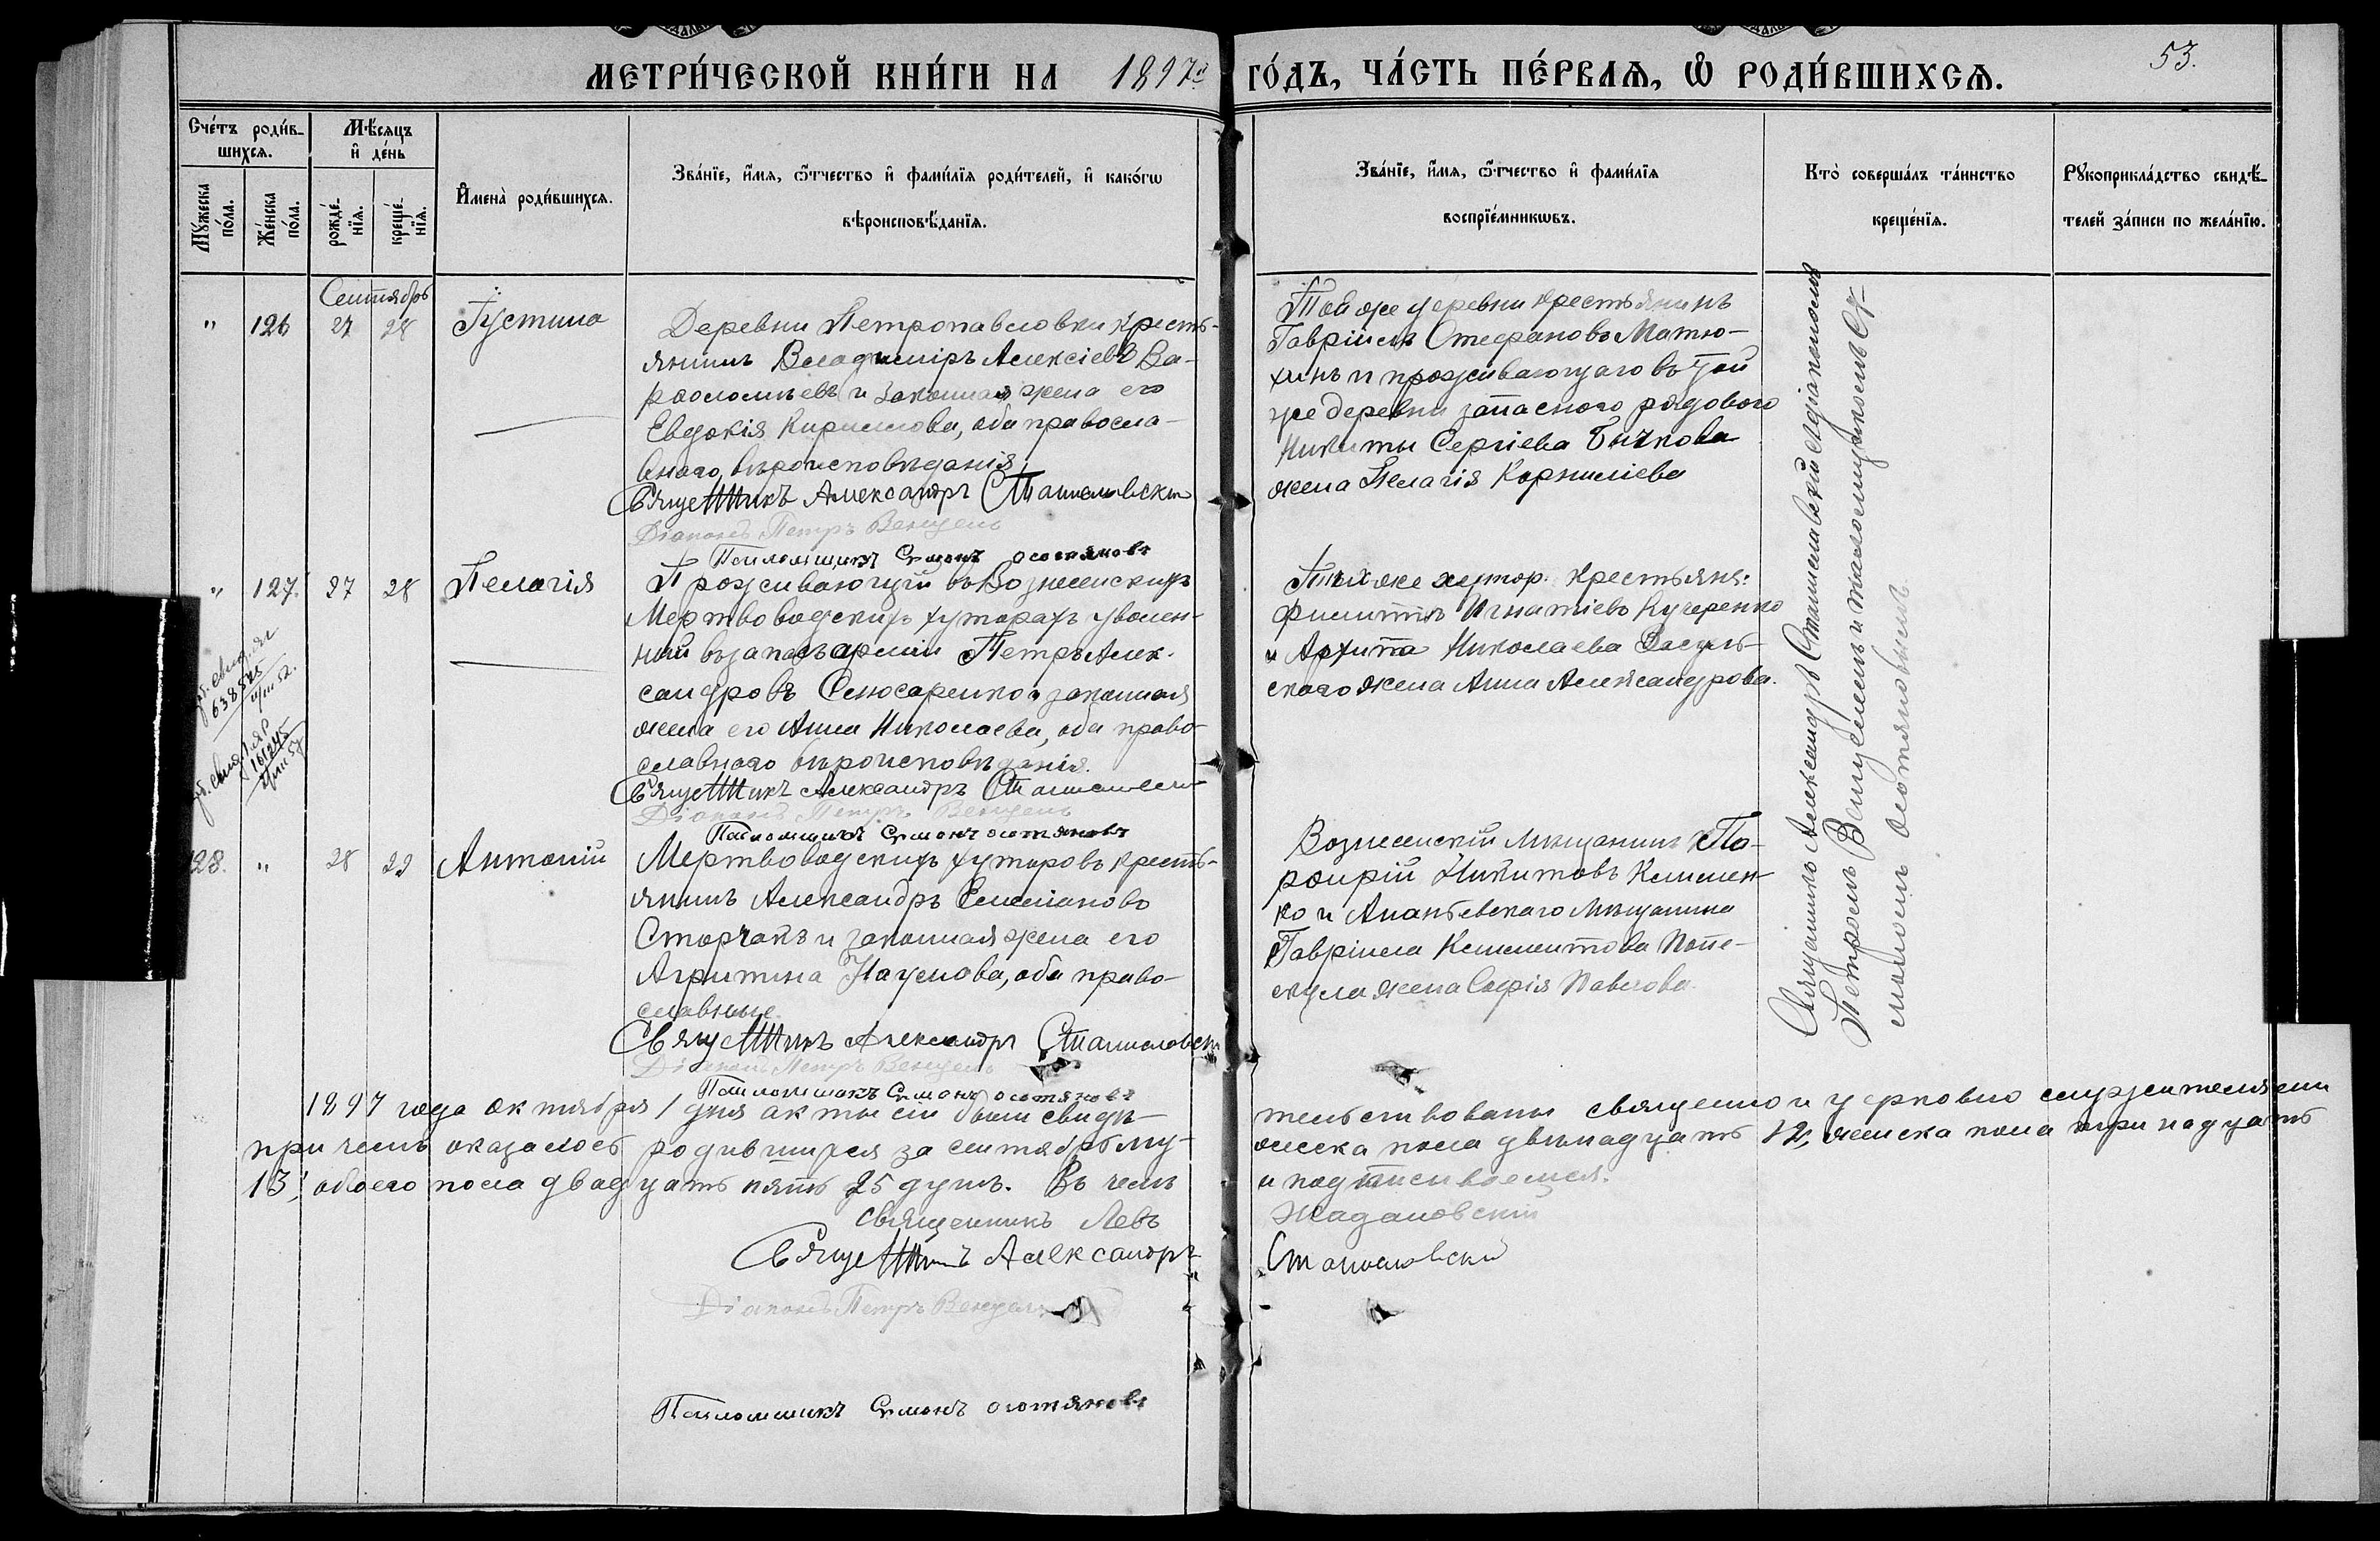 МЕТРИ́ЧЕСКОЙ КНИ́ГИ НА 1897й ГО́ДЪ, ЧА́СТЬ ПЕ́РВАѦ, Ѡ҆ РОДИ́ВШИХСѦ.
53.
Сче́тъ роди́в-
шихсѧ.
Мѣ́сѧцъ
и҆ де́нь
Мꙋ́жеска по́ла.
Же́нска по́ла.
рожде́-нїѧ.
креще́-нїѧ.
И҆мена̀ роди́вшихсѧ.
Зва́нїе, и҆́мѧ, ѻ҆́тчество и҆ фами́лїѧ роди́телей, и҆ како́гѡ
вѣроисповѣ́данїѧ.
Зва́нїе, и҆́мѧ, ѻ҆́тчество и҆ фами́лїѧ
воспрїе́мникѡвъ.
Кто̀ соверша́лъ та́инство
креще́нїѧ.
Рꙋкоприкла́дство свидѣ́-
телей за́писи по жела́нїю.
Сентябрь
" 126 27 28 Іустина
Деревни Петропавловки кресть-
янинъ Владиміръ Алексіевъ Ва-
рѳоломѣевъ и законная жена его
Евдокія Кириллова, оба правосла-
внаго вѣроисповѣданія
Священникъ Александръ Станиславскій
Діаконъ Петръ Венцель
Псаломщикъ Симонъ Осотяновъ
Той же деревни крестьянинъ
Гавріилъ Стефановъ Матю-
хинъ и проживающаго въ той
же деревни запаснаго рядового
Никиты Сергіева Бычкова
жена Пелагія Корниліева
" 127. 27 28 Пелагія
Проживающій въ Вознесенскихъ
Мертвоводскихъ хуторахъ уволен-
ный въ запасъ арміи Петръ Алек-
сандровъ Слюсаренко и законная
жена его Анна Николаева, оба право-
славнаго вѣроисповѣданія.
Священникъ Александръ Станиславскій
Діаконъ Петръ Венцель
Псаломщикъ Симонъ Осотяновъ
Тѣхъ же хутор. крестьяне:
Филиппъ Игнатіевъ Кучеренко
и Архипа Николаева
жена Анна Александрова.
638575
161245
128. " 28 29 Антоній
Мертвоводскихъ хуторовъ кресть-
янинъ Александръ Емеліановъ
Сторчакъ и законная жена его
Агрипина Наумова, оба право-
славные.
Священникъ Александръ Станиславскій
Діаконъ Петръ Венцель
Псаломщикъ Симонъ Осотяновъ
Вознесенскій мѣщанинъ По-
рфирій Никитовъ Климен-
ко и Ананьевскаго мѣщанина
Гавріила Климентова Попе-
скула жена Софія Павлова.
Священникъ Александръ Станиславскій съ діакономъ
Петромъ Венцелемъ и псаломщикомъ Си-
мономъ Осотяновымъ
1897 года октября 1 дня акты сіи были свидѣ-
тельствованы священно и церковно служителями
при чемъ оказалось родившихся за сентябрь му-
жеска пола двѣнадцать 12, женска пола тринадцать
13, обоего пола двадцать пять 25 душъ. Въ чемъ
и подписываемся.
Священникъ Левъ Жадановскій
Священникъ Александръ Станиславскій
Діаконъ Петръ Венцель
Псаломщикъ Симонъ Осотяновъ